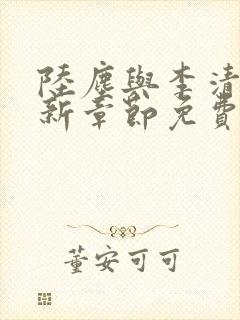 陸塵與李清
新章節免費
董安可可